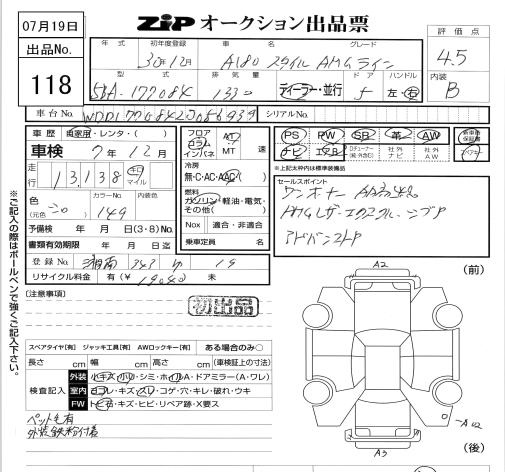 07月19日
出品No.
118
ZIP オークション出品票
評価点
4.5
内装
B
年式 初年度登録 車名 グレード
30年12月 A180 スタイル AMGライン
型式 排気量 ドア ハンドル
5BA-177084 1330 ディーラー・並行 5 左・右
車台No. シリアルNo.
車歴 自家用・レンタ・( )
車検 7年12月
走行 13,138 キロ マイル
色 カラーNo. 内装色
(元色 ) 149
予備検 年 月 日(3・8)No.
書類有効期限 年 月 日迄
登録No. 湘南 343 19
リサイクル料金 有(¥ ) 未
フロア コラム インパネ
AT MT 速
冷房
無・C・AC・AAC( )
燃料
ガソリン・軽油・電気・その他( )
Nox 適合・非適合
乗車定員 名
PS PW SR 革 AW
ナビ エアB Dチューナー(純・外含む) 社外ナビ 社外AW
新車時保証書
※上記太枠内は標準装備品
セールスポイント
ワンオーナー
アドバンストP
[注意事項]
初出品
スペアタイヤ[有] ジャッキ工具[有] AWロックキー[有] ある場合のみ○
長さ cm 幅 cm 高さ cm (車検証上の寸法)
検査記入
外装 小キズ・凹・シミ・ホイルA・ドアミラー(A・ワレ)
室内 ヨゴレ・キズ・スレ・コゲ・穴・キレ・破れ・ウキ
FW トビ石・キズ・ヒビ・リペア跡・X要ス
ペット毛有
外装鉄粉付着
※ご記入の際はボールペンで強くご記入下さい。
A2
(前)
A3
(後)